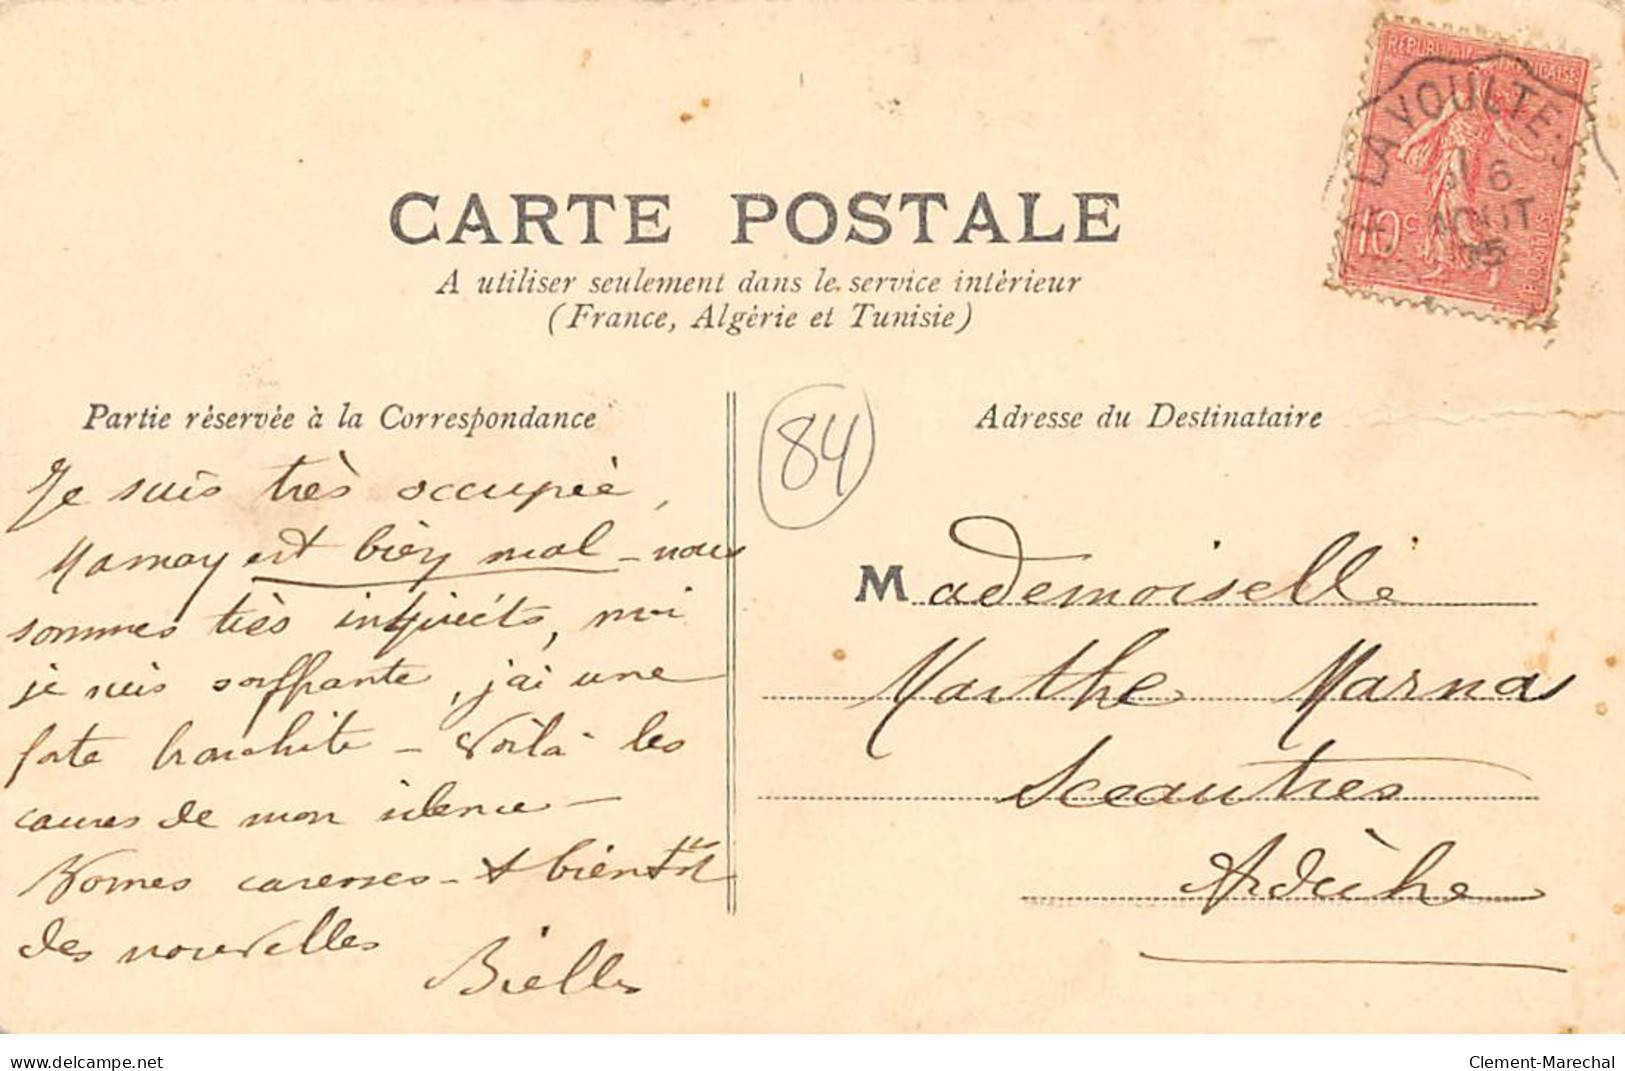 CARTE POSTALE
A utiliser seulement dans le service intérieur
(France, Algérie et Tunisie)
RÉPUBLIQUE FRANÇAISE
10c
POSTES
LA VOULTE
6
AOUT
05
Partie réservée à la Correspondance
84
Adresse du Destinataire
Je suis très occupée,
est bien mal - nous
sommes très inquiets, moi
je suis souffrante, j'ai une
forte bronchite - Voilà les
causes de mon silence -
Bonnes caresses - A bientôt
des nouvelles
Bielle
Mademoiselle
Marthe Marnas
Sceautres
Ardèche
www.delcampe.net
Clement-Marechal